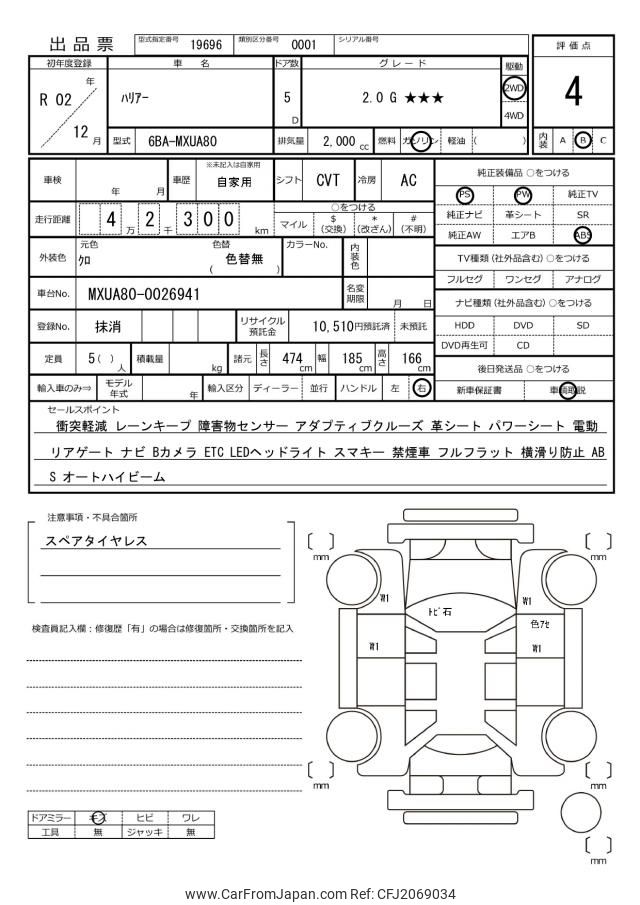 出品票
型式指定番号 19696 類別区分番号 0001 シリアル番号
評価点
初年度登録 車名 ドア数 グレード 駆動
R 02 年 ﾊﾘｱｰ 5 D 2.0 G ★★★ 2WD 4
12 月 4WD
型式 6BA-MXUA80 排気量 2,000 cc 燃料 ガソリン 軽油 ( ) 内装 A B C
車検 年 月 車歴 ※未記入は自家用 自家用 シフト CVT 冷房 AC
純正装備品 ○をつける
PS PW 純正TV
走行距離 4 万 2 千 3 0 0 km
○をつける
マイル $ (交換) * (改ざん) # (不明)
純正ナビ 革シート SR
純正AW エアB ABS
外装色 元色 ｸﾛ 色替 ( 色替無 ) カラーNo. 内装色
TV種類 (社外品含む) ○をつける
フルセグ ワンセグ アナログ
車台No. MXUA80-0026941 名変期限 月 日
ナビ種類 (社外品含む) ○をつける
登録No. 抹消 リサイクル預託金 10,510円預託済 未預託
HDD DVD SD
DVD再生可 CD
定員 5 ( ) 人 積載量 kg 諸元 長さ 474 cm 幅 185 cm 高さ 166 cm
後日発送品 ○をつける
輸入車のみ⇒ モデル年式 年 輸入区分 ディーラー 並行 ハンドル 左 右
新車保証書 車輌取説
セールスポイント
衝突軽減 レーンキープ 障害物センサー アダプティブクルーズ 革シート パワーシート 電動
リアゲート ナビ Bカメラ ETC LEDヘッドライト スマキー 禁煙車 フルフラット 横滑り防止 AB
S オートハイビーム
注意事項・不具合箇所
スペアタイヤレス
検査員記入欄：修復歴「有」の場合は修復箇所・交換箇所を記入
mm
mm
W1
ﾄﾋﾞ石
W1
色ｱｾ
W1
W1
mm
mm
mm
ドアミラー キズ ヒビ ワレ
工具 無 ジャッキ 無
www.CarFromJapan.com Ref: CFJ2069034